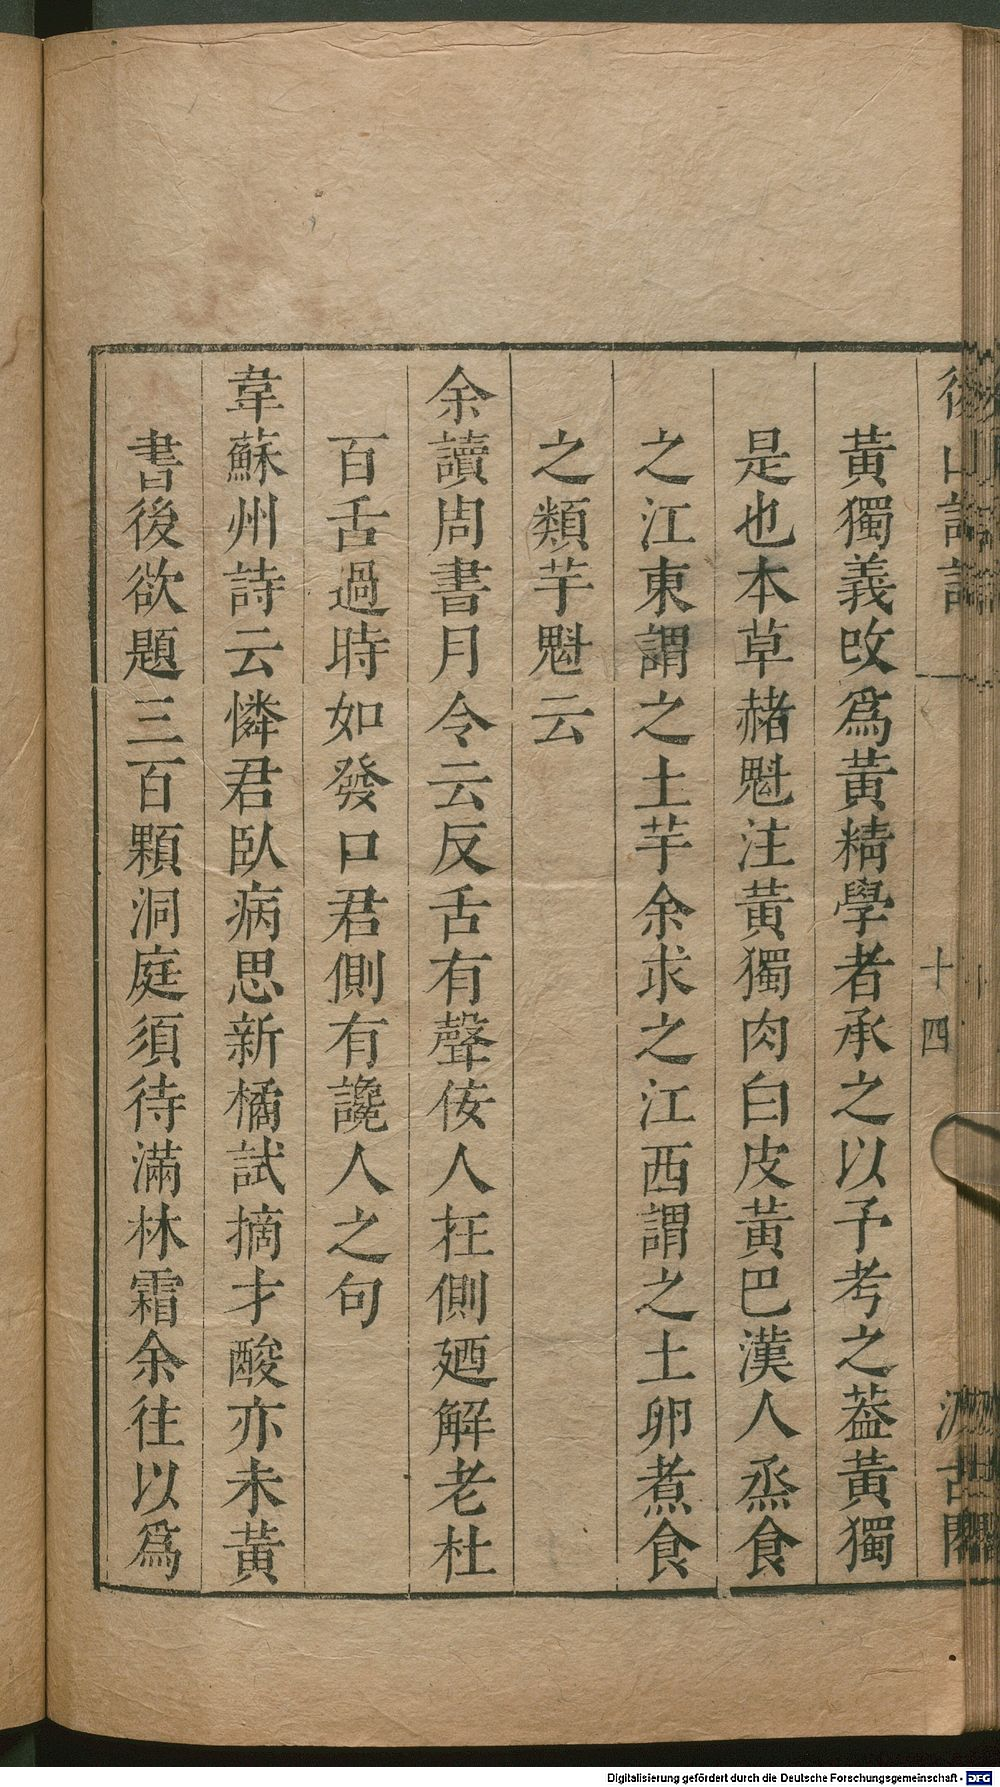 後山詩話
十四
汲古閣
黃獨義改爲黃精學者承之以予考之葢黃獨
是也本草赭魁注黃獨肉白皮黃巴漢人烝食
之江東謂之土芋余求之江西謂之土卵煮食
之類芋魁云
余讀周書月令云反舌有聲佞人在側廼解老杜
百舌過時如發口君側有讒人之句
韋蘇州詩云憐君臥病思新橘試摘才酸亦未黃
書後欲題三百顆洞庭須待滿林霜余往以爲
Digitalisierung gefördert durch die Deutsche Forschungsgemeinschaft - DFG